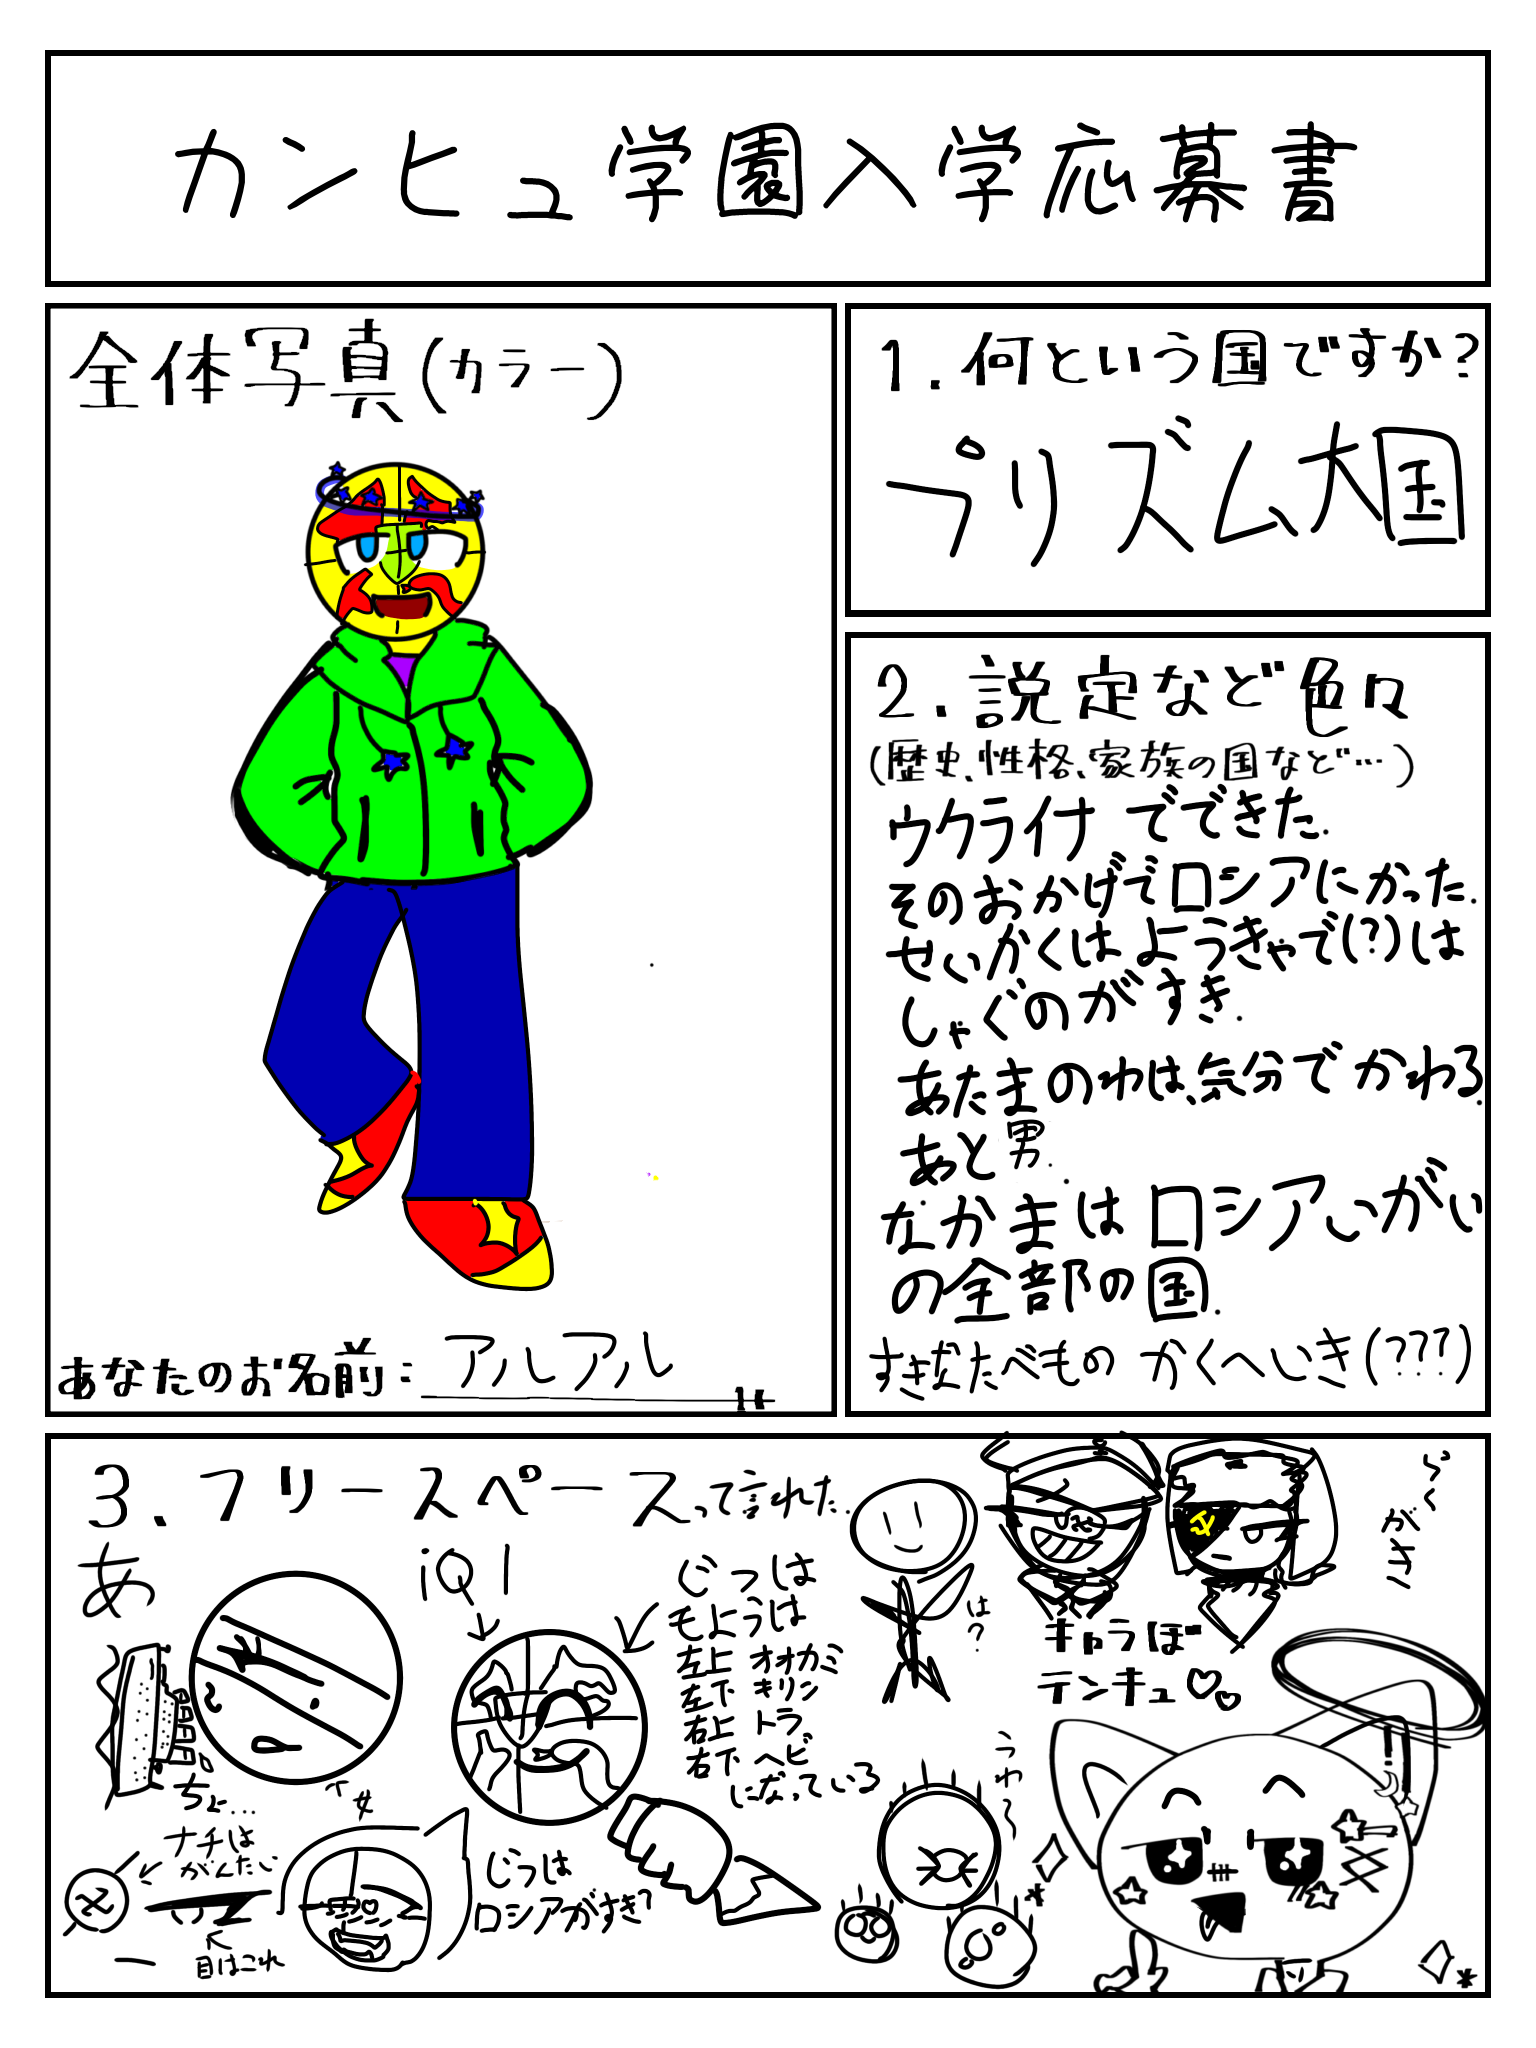 カンヒュ学園入学応募書
全体写真(カラー)
あなたのお名前:アルアル
1.何という国ですか?
プリズム大国
2.説定など色々
(歴史、性格、家族の国など…)
ウクライナでできた.
そのおかげでロシアにかった.
せいかくはようきゃで(?)は
しゃぐのがすき.
あたまのわは、気分でかわる.
あと男.
なかまはロシアいがい
の全部の国.
すきなたべもの かくへいき(???)
3.フリースペースって言れた.
あ
iQ1
じつは
もようは
左上 オオカミ
左下 キリン
右上 トラ
右下 ヘビ
になっている
は?
らくがき
キャラぼ
テンキュ♡♡
ちょ…
女
ナチは
がんたい
目はこれ
じつは
ロシアがすき?
うわ〜